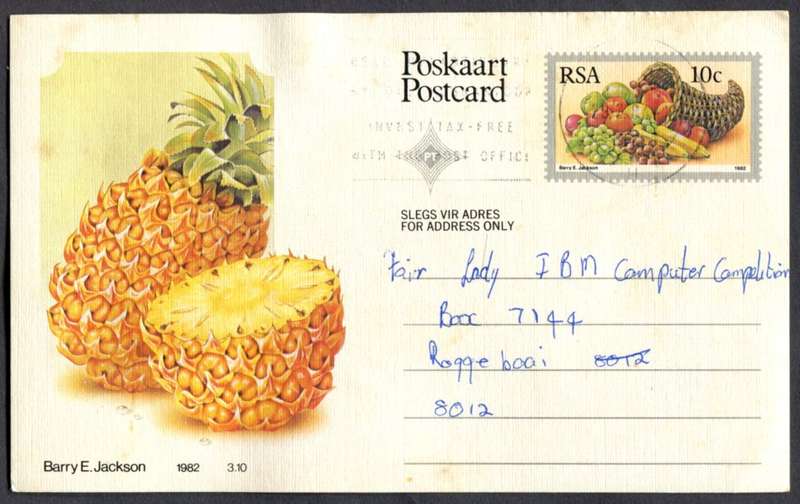 Poskaart
Postcard
RSA 10c
Barry E. Jackson 1982
INVEST TAX-FREE
WITH THE POST OFFICE
PT
SLEGS VIR ADRES
FOR ADDRESS ONLY
Fair Lady IBM Computer Competition
Box 7144
Roggebaai 8012
8012
Barry E. Jackson 1982 3.10